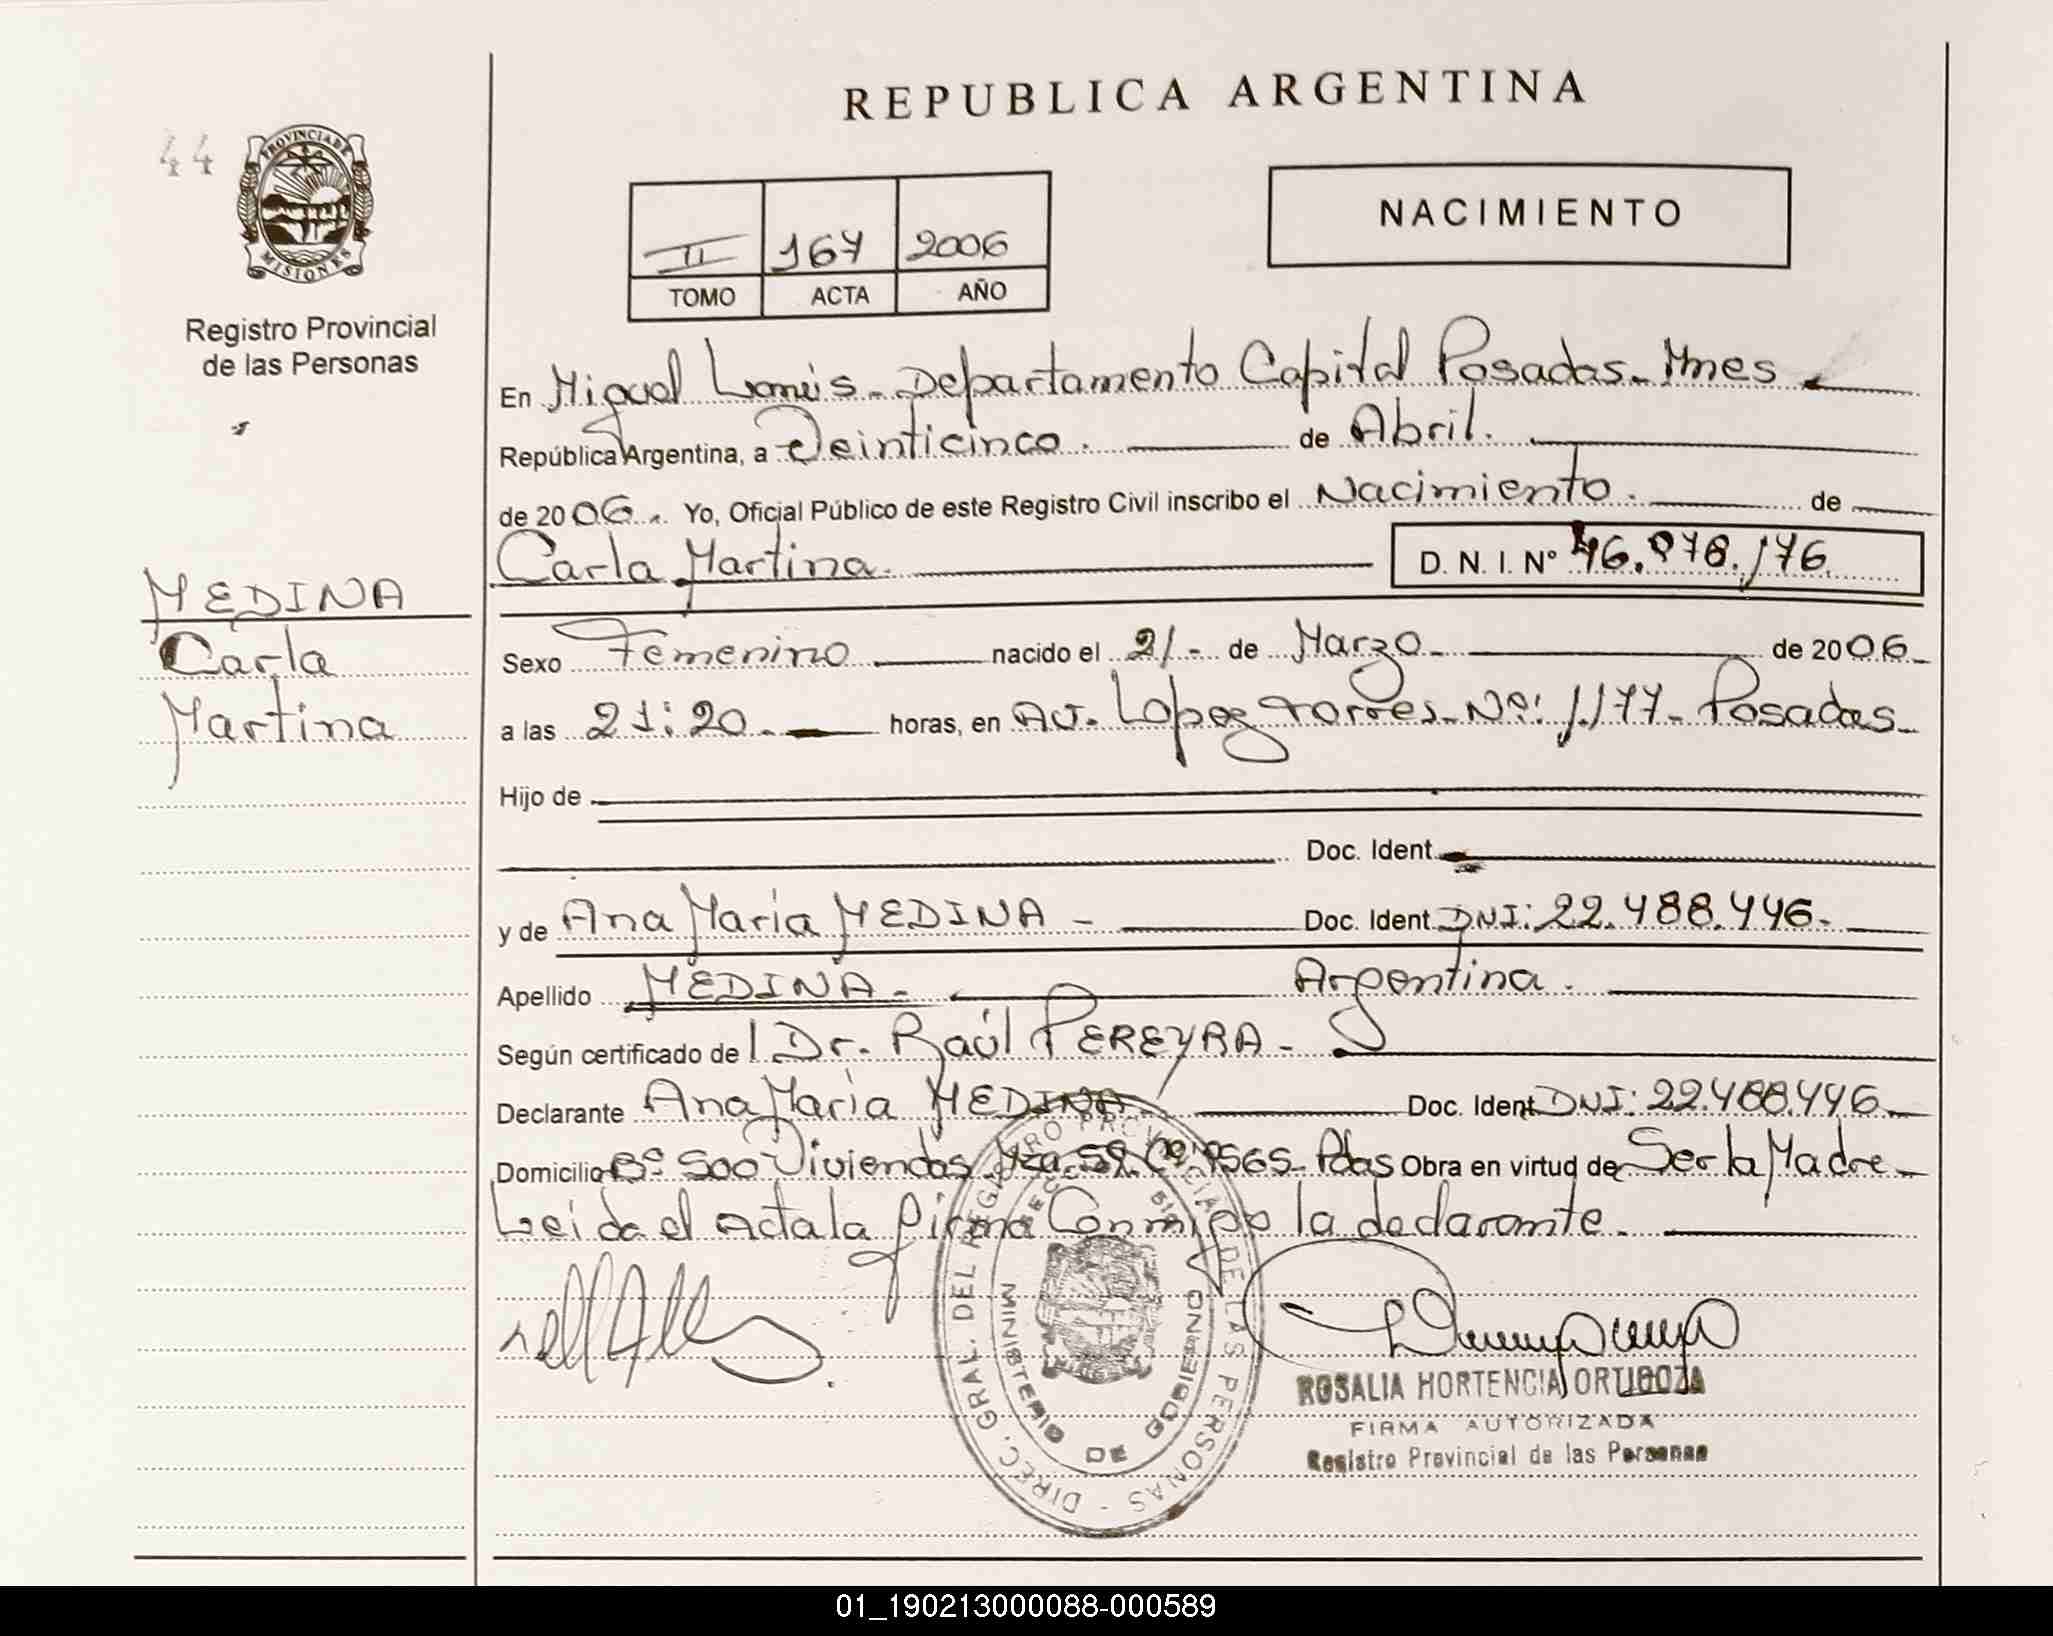 REPUBLICA ARGENTINA
44
PROVINCIA DE
MISIONES
Registro Provincial
de las Personas
II 167 2006
TOMO ACTA AÑO
NACIMIENTO
En Miguel Lanús - Departamento Capital Posadas - Mnes
República Argentina, a Veinticinco. de Abril.
de 2006. Yo, Oficial Público de este Registro Civil inscribo el Nacimiento. de
Carla Martina. D. N. I. Nº 46.878.176
MEDINA
Carla
Martina
Sexo Femenino nacido el 21 - de Marzo - de 2006 -
a las 21:20 - horas, en Av. Lopez Torres - Nº: 1.177 - Posadas -
Hijo de
Doc. Ident.
y de Ana María MEDINA - Doc. Ident. DNI: 22.488.446 -
Apellido MEDINA - Argentina.
Según certificado del Dr. Raúl PEREYRA -
Declarante Ana María MEDINA - Doc. Ident. DNI: 22.488.446 -
Domicilio Bº 500 Viviendas Pdas Obra en virtud de Ser la Madre -
Leída el Acta la firma Conmigo la declarante.
DIREC. GRAL. DEL REGISTRO PROVINCIAL DE LAS PERSONAS -
MINISTERIO DE GOBIERNO
ROSALIA HORTENCIA ORTIGOZA
FIRMA AUTORIZADA
Registro Provincial de las Personas
01_190213000088-000589